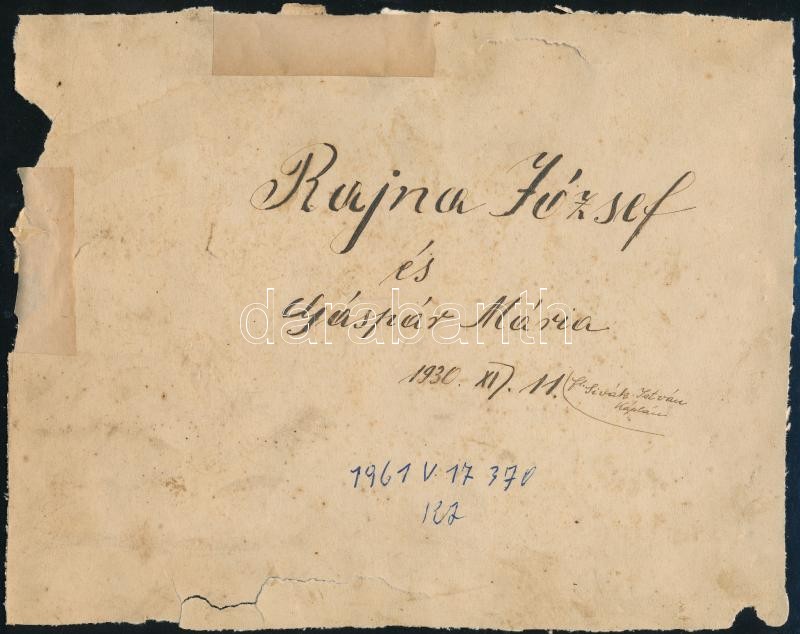 Rajna József
és
Gáspár Mária
1930. XI. 11. Sivák István
Káplán
darabanth
1961 V. 17 370